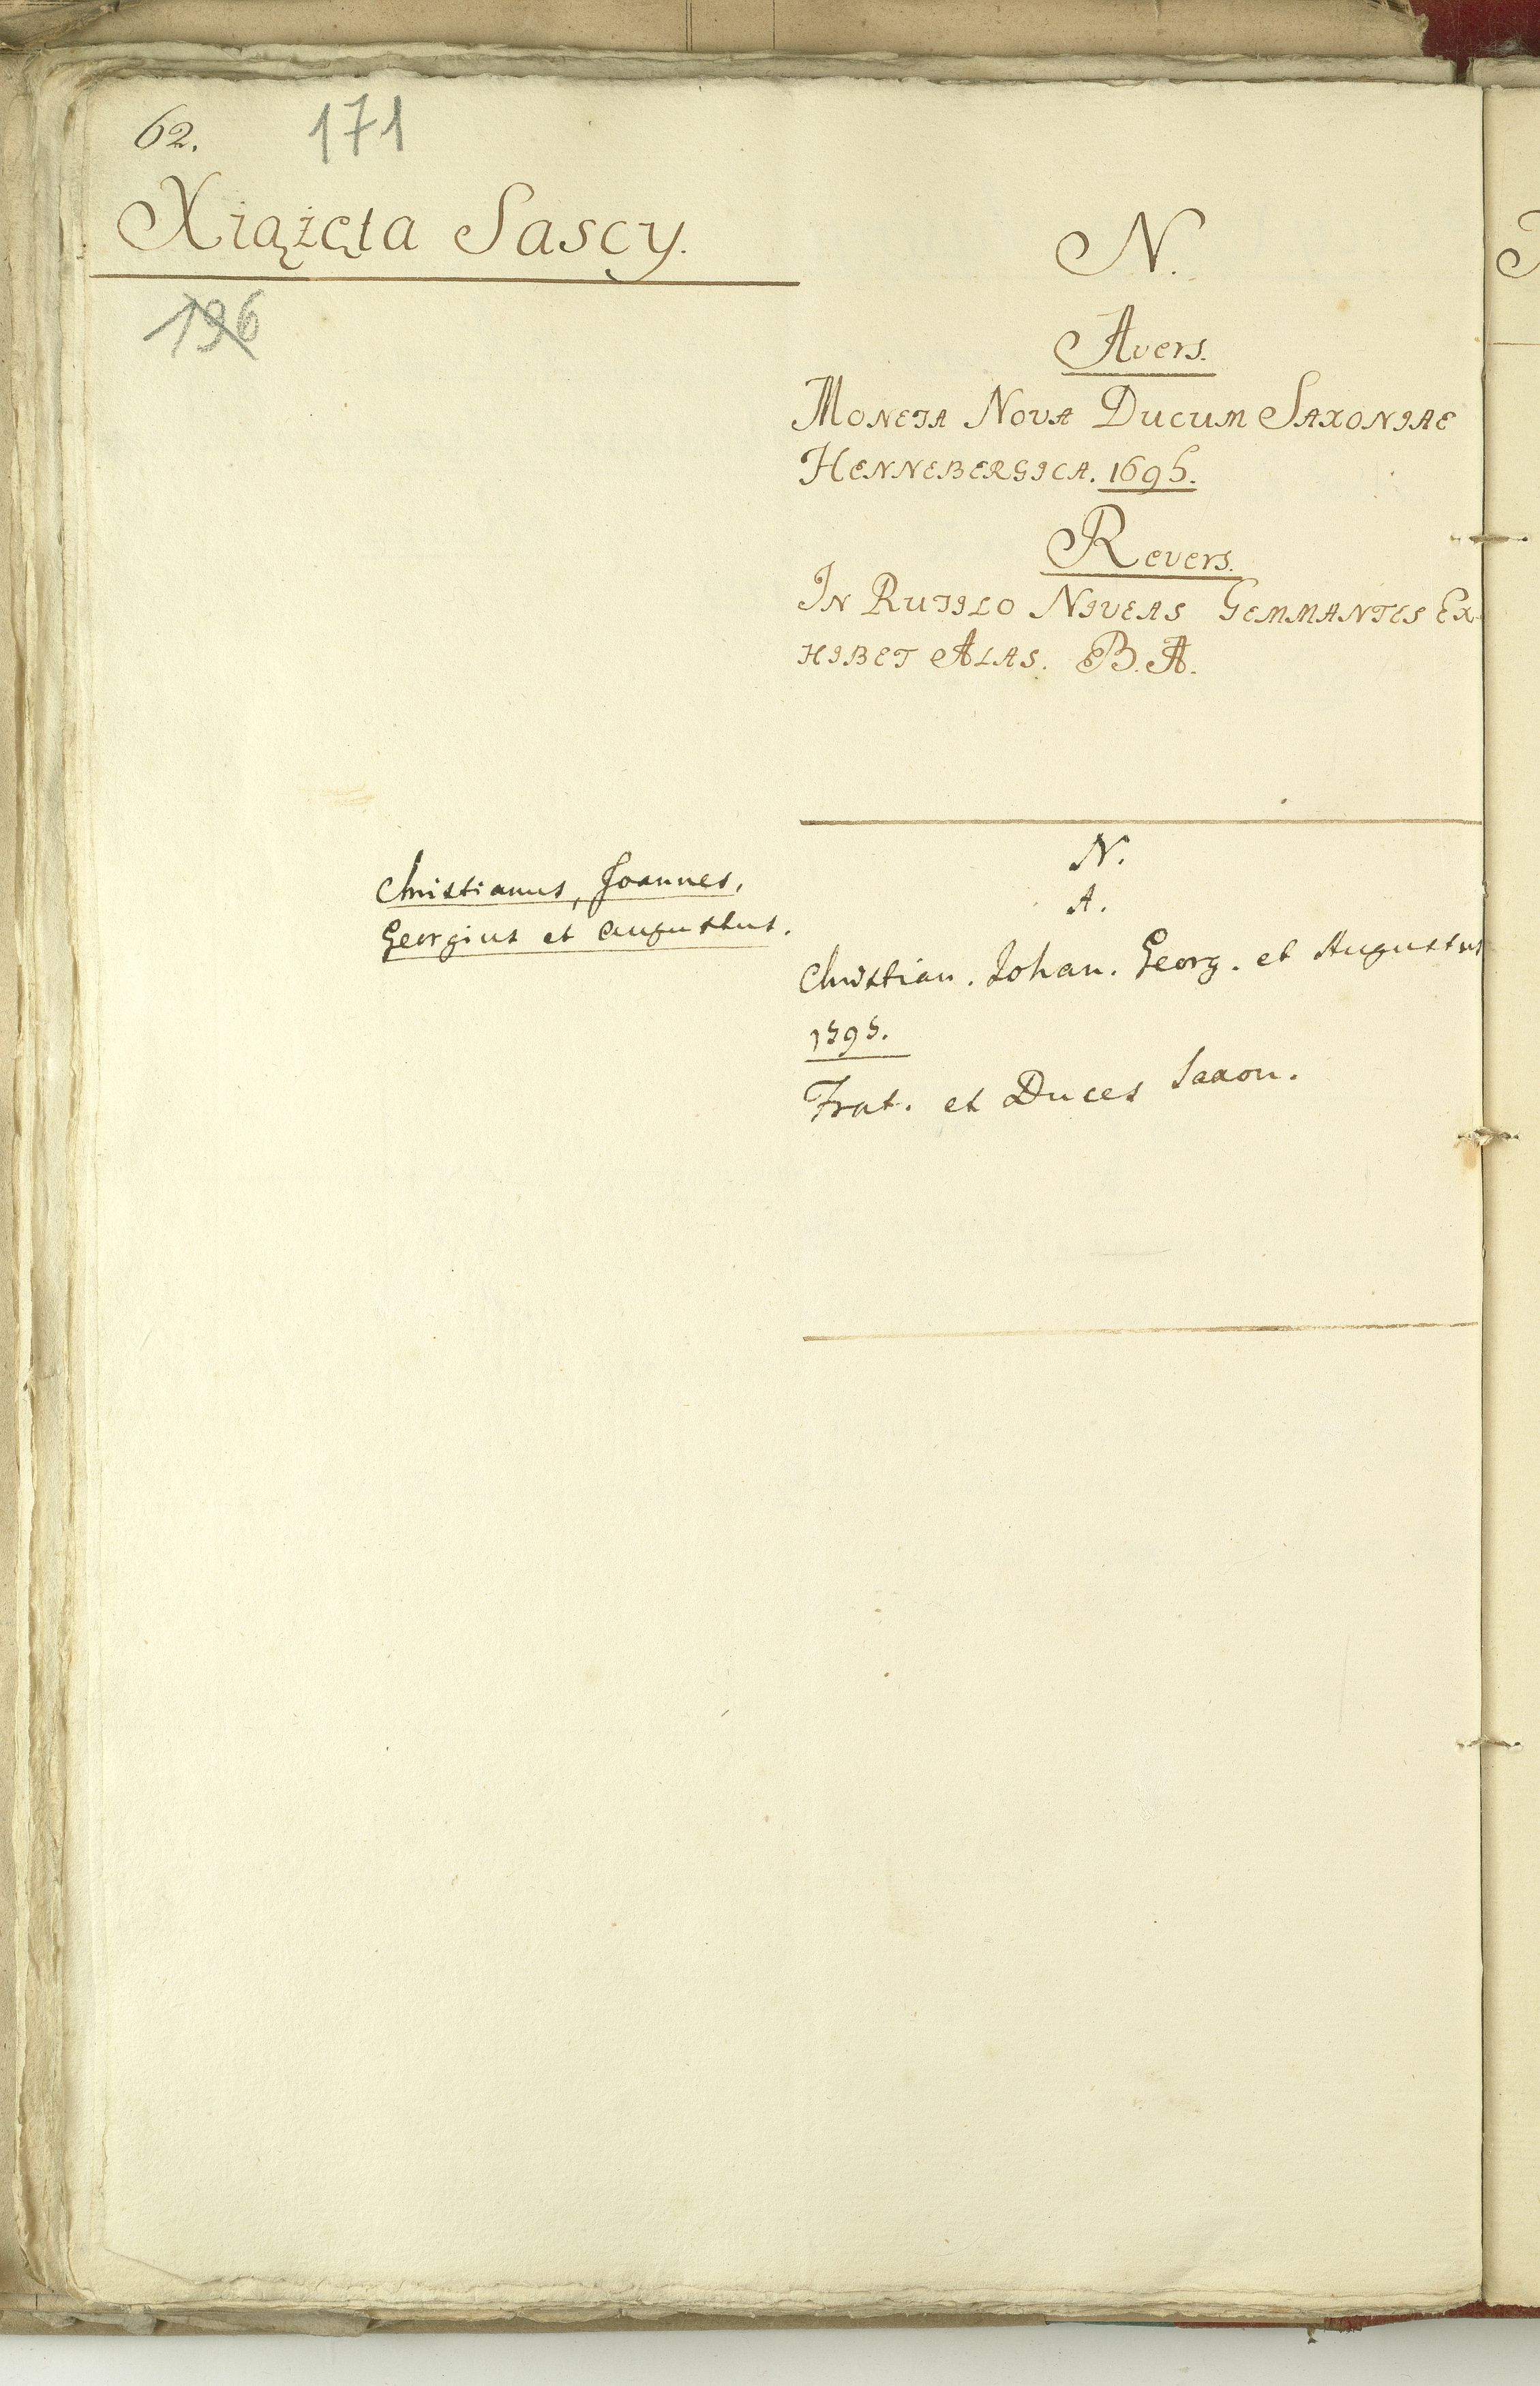 62. 171
Xiążęta Sascy.
196
N.
Avers.
Moneta Nova Ducum Saxoniae
Hennebergica. 1695.
Revers.
In Rutilo Niveas Gemmantes Ex-
hibet Alas. B. A.
Christianus, Joannes,
Georgius et Augustus.
N.
A.
Christian. Johan. Georg. et Augustus
1595.
Frat. et Duces Saxon.